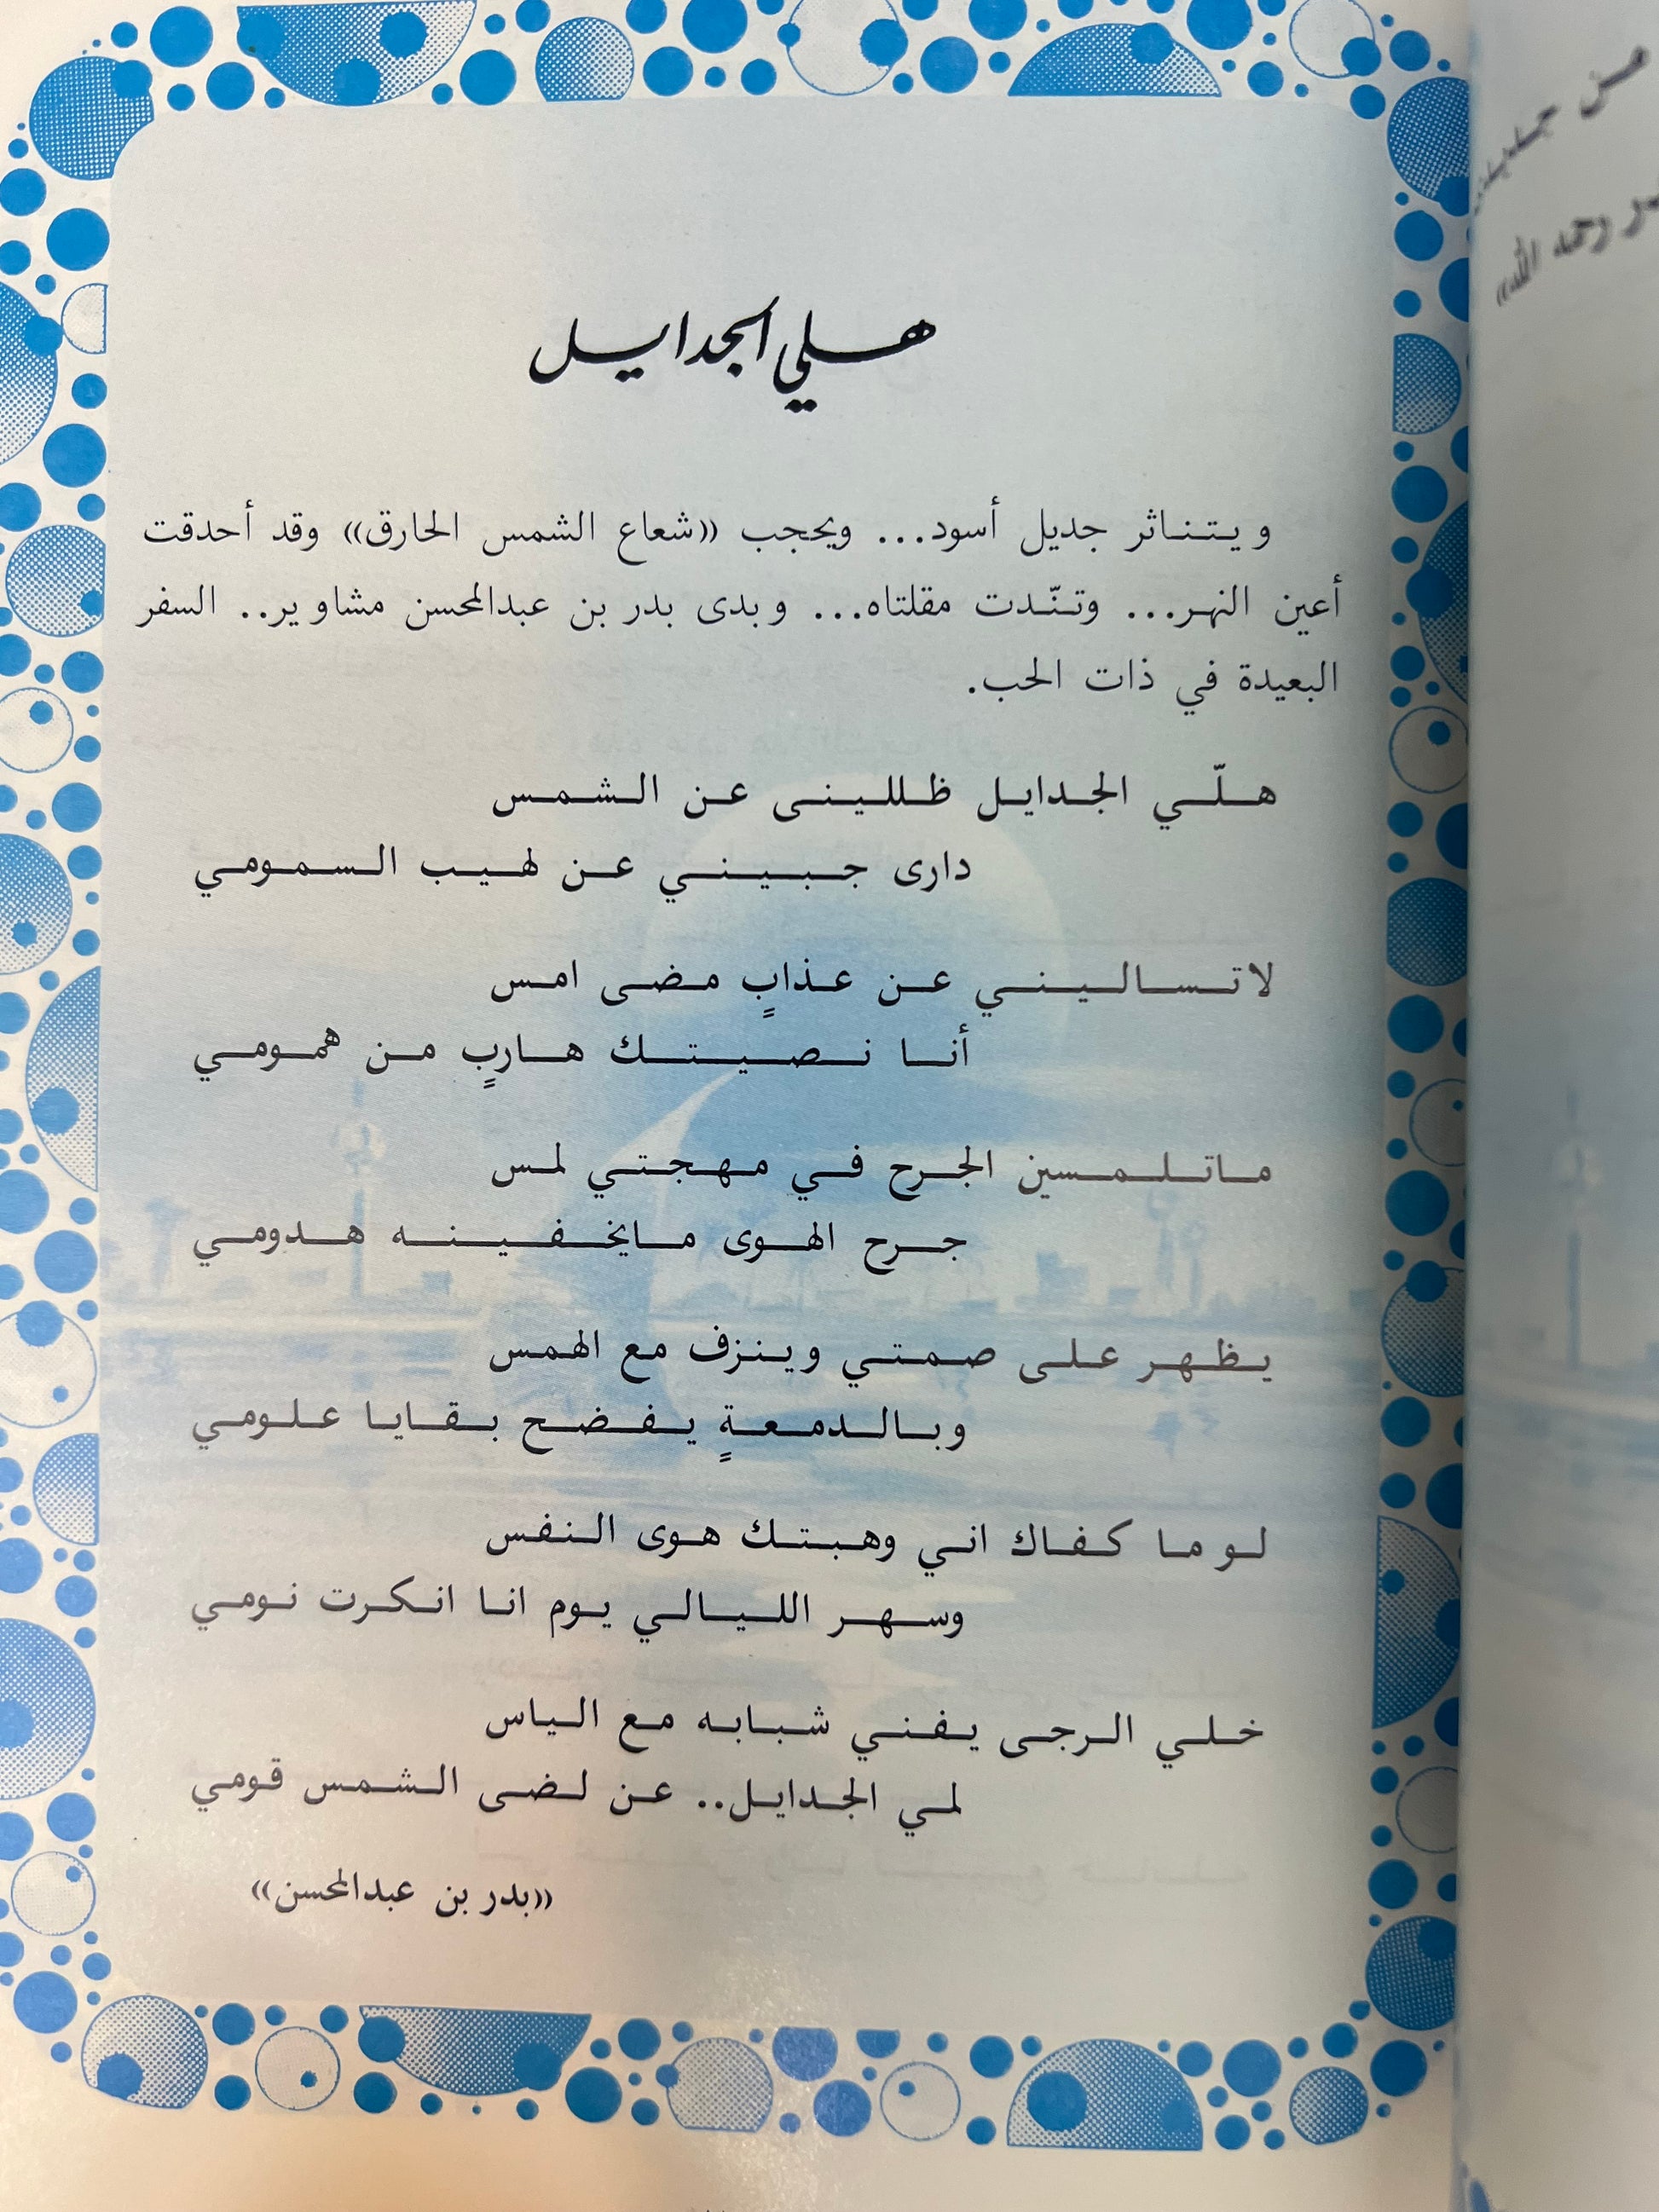 هلي الجدايل
ويتناثر جديل أسود... ويحجب «شعاع الشمس الحارق» وقد أحدقت
أعين النهر... وتنّدت مقلتاه... وبدى بدر بن عبدالمحسن مشاوير.. السفر
البعيدة في ذات الحب.
هلّي الجدايل ظللينى عن الشمس
دارى جبيني عن لهيب السمومي
لاتساليني عن عذابٍ مضى امس
أنا نصيتك هاربٍ من همومي
ماتلمسين الجرح في مهجتي لمس
جرح الهوى مايخفينه هدومي
يظهر على صمتي وينزف مع الهمس
وبالدمعةٍ يفضح بقايا علومي
لو ما كفاك اني وهبتك هوى النفس
وسهر الليالي يوم انا انكرت نومي
خلي الرجى يفني شبابه مع الياس
لمي الجدايل.. عن لضى الشمس قومي
«بدر بن عبدالمحسن»
من
رحمه الله»